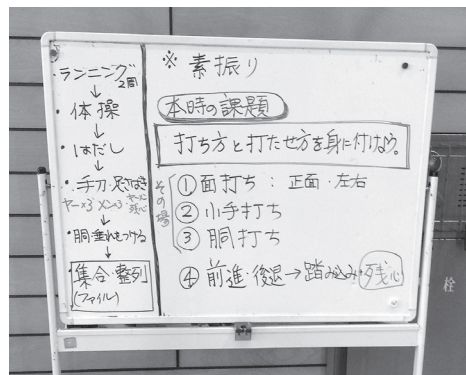 ・ランニング
2周
↓
・体操
↓
・はだし
↓
・手刀・足さばき
ヤー×3 メン×3
↓
・胴・垂れをつける
↓
集合・整列
(ファイル)
※ 素振り
本時の課題
打ち方と打たせ方を身に付けよう。
その場
① 面打ち : 正面・左右
② 小手打ち
③ 胴打ち
④ 前進・後退→踏み込み・残心
栓